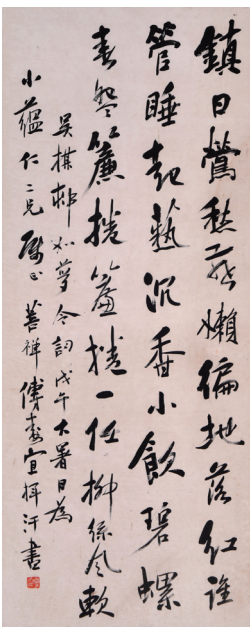 鎮日鶯愁燕懶徧地落紅誰
管睡起爇沉香小飲碧螺
春盌簾捲簾捲一任桺絲風軟
吳楳邨如夢令詞戊午大暑日為
小蘊仁二兄屬正 菩禅傅 宣揮汗書